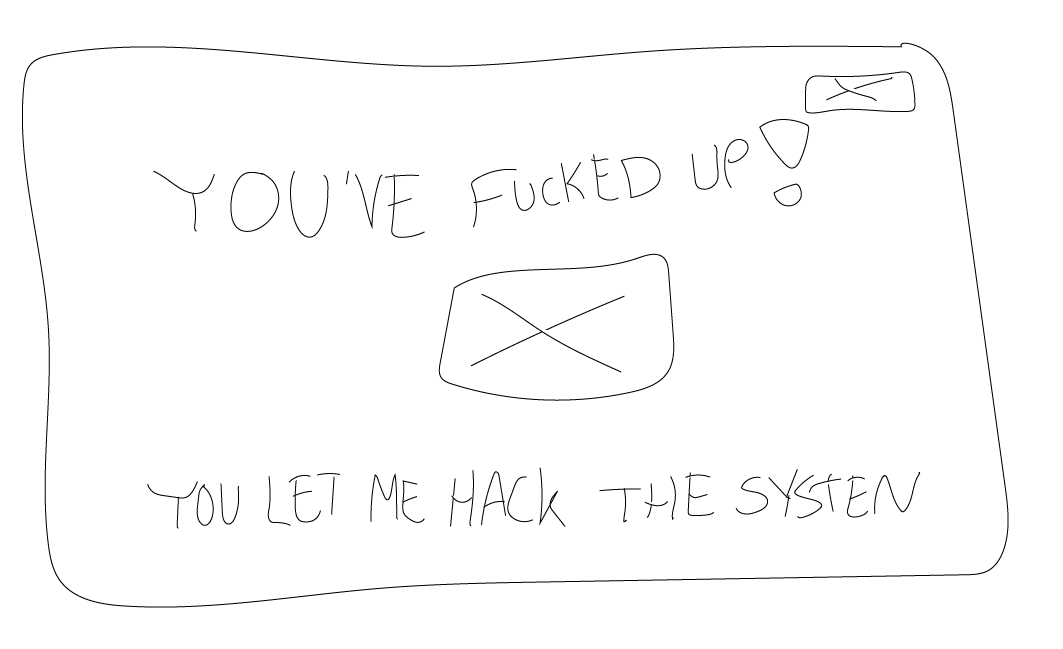 YOU'VE FUCKED UP!
YOU LET ME HACK THE SYSTEN